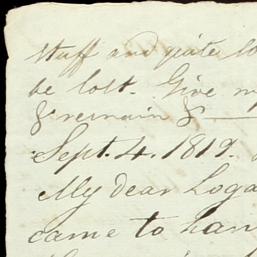 stuff and quite lo
be lost. Give m
& remain &
Sept. 4. 1819.
My dear Loga
came to han